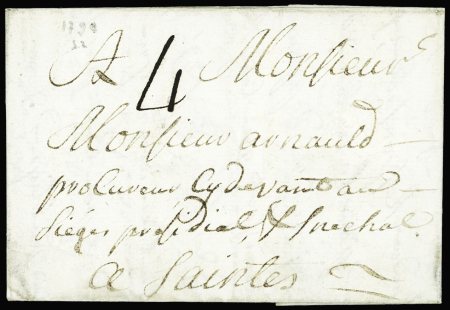 A 4 Monsieur
Monsieur arnauld
procureur Cydevant au
Siéges présidial, & Snechal.
a Saintes